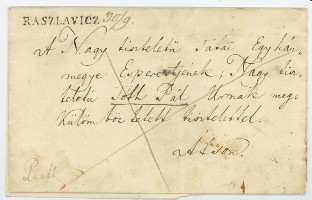 RASZLAVICZ 30/9.
A Nagy tiszteletü Tátai Egyház-
megye Esperestjének, Nagy tisz-
teletü Tóth Pál Urnak meg-
külömböztetett tisztelettel.
Pesth